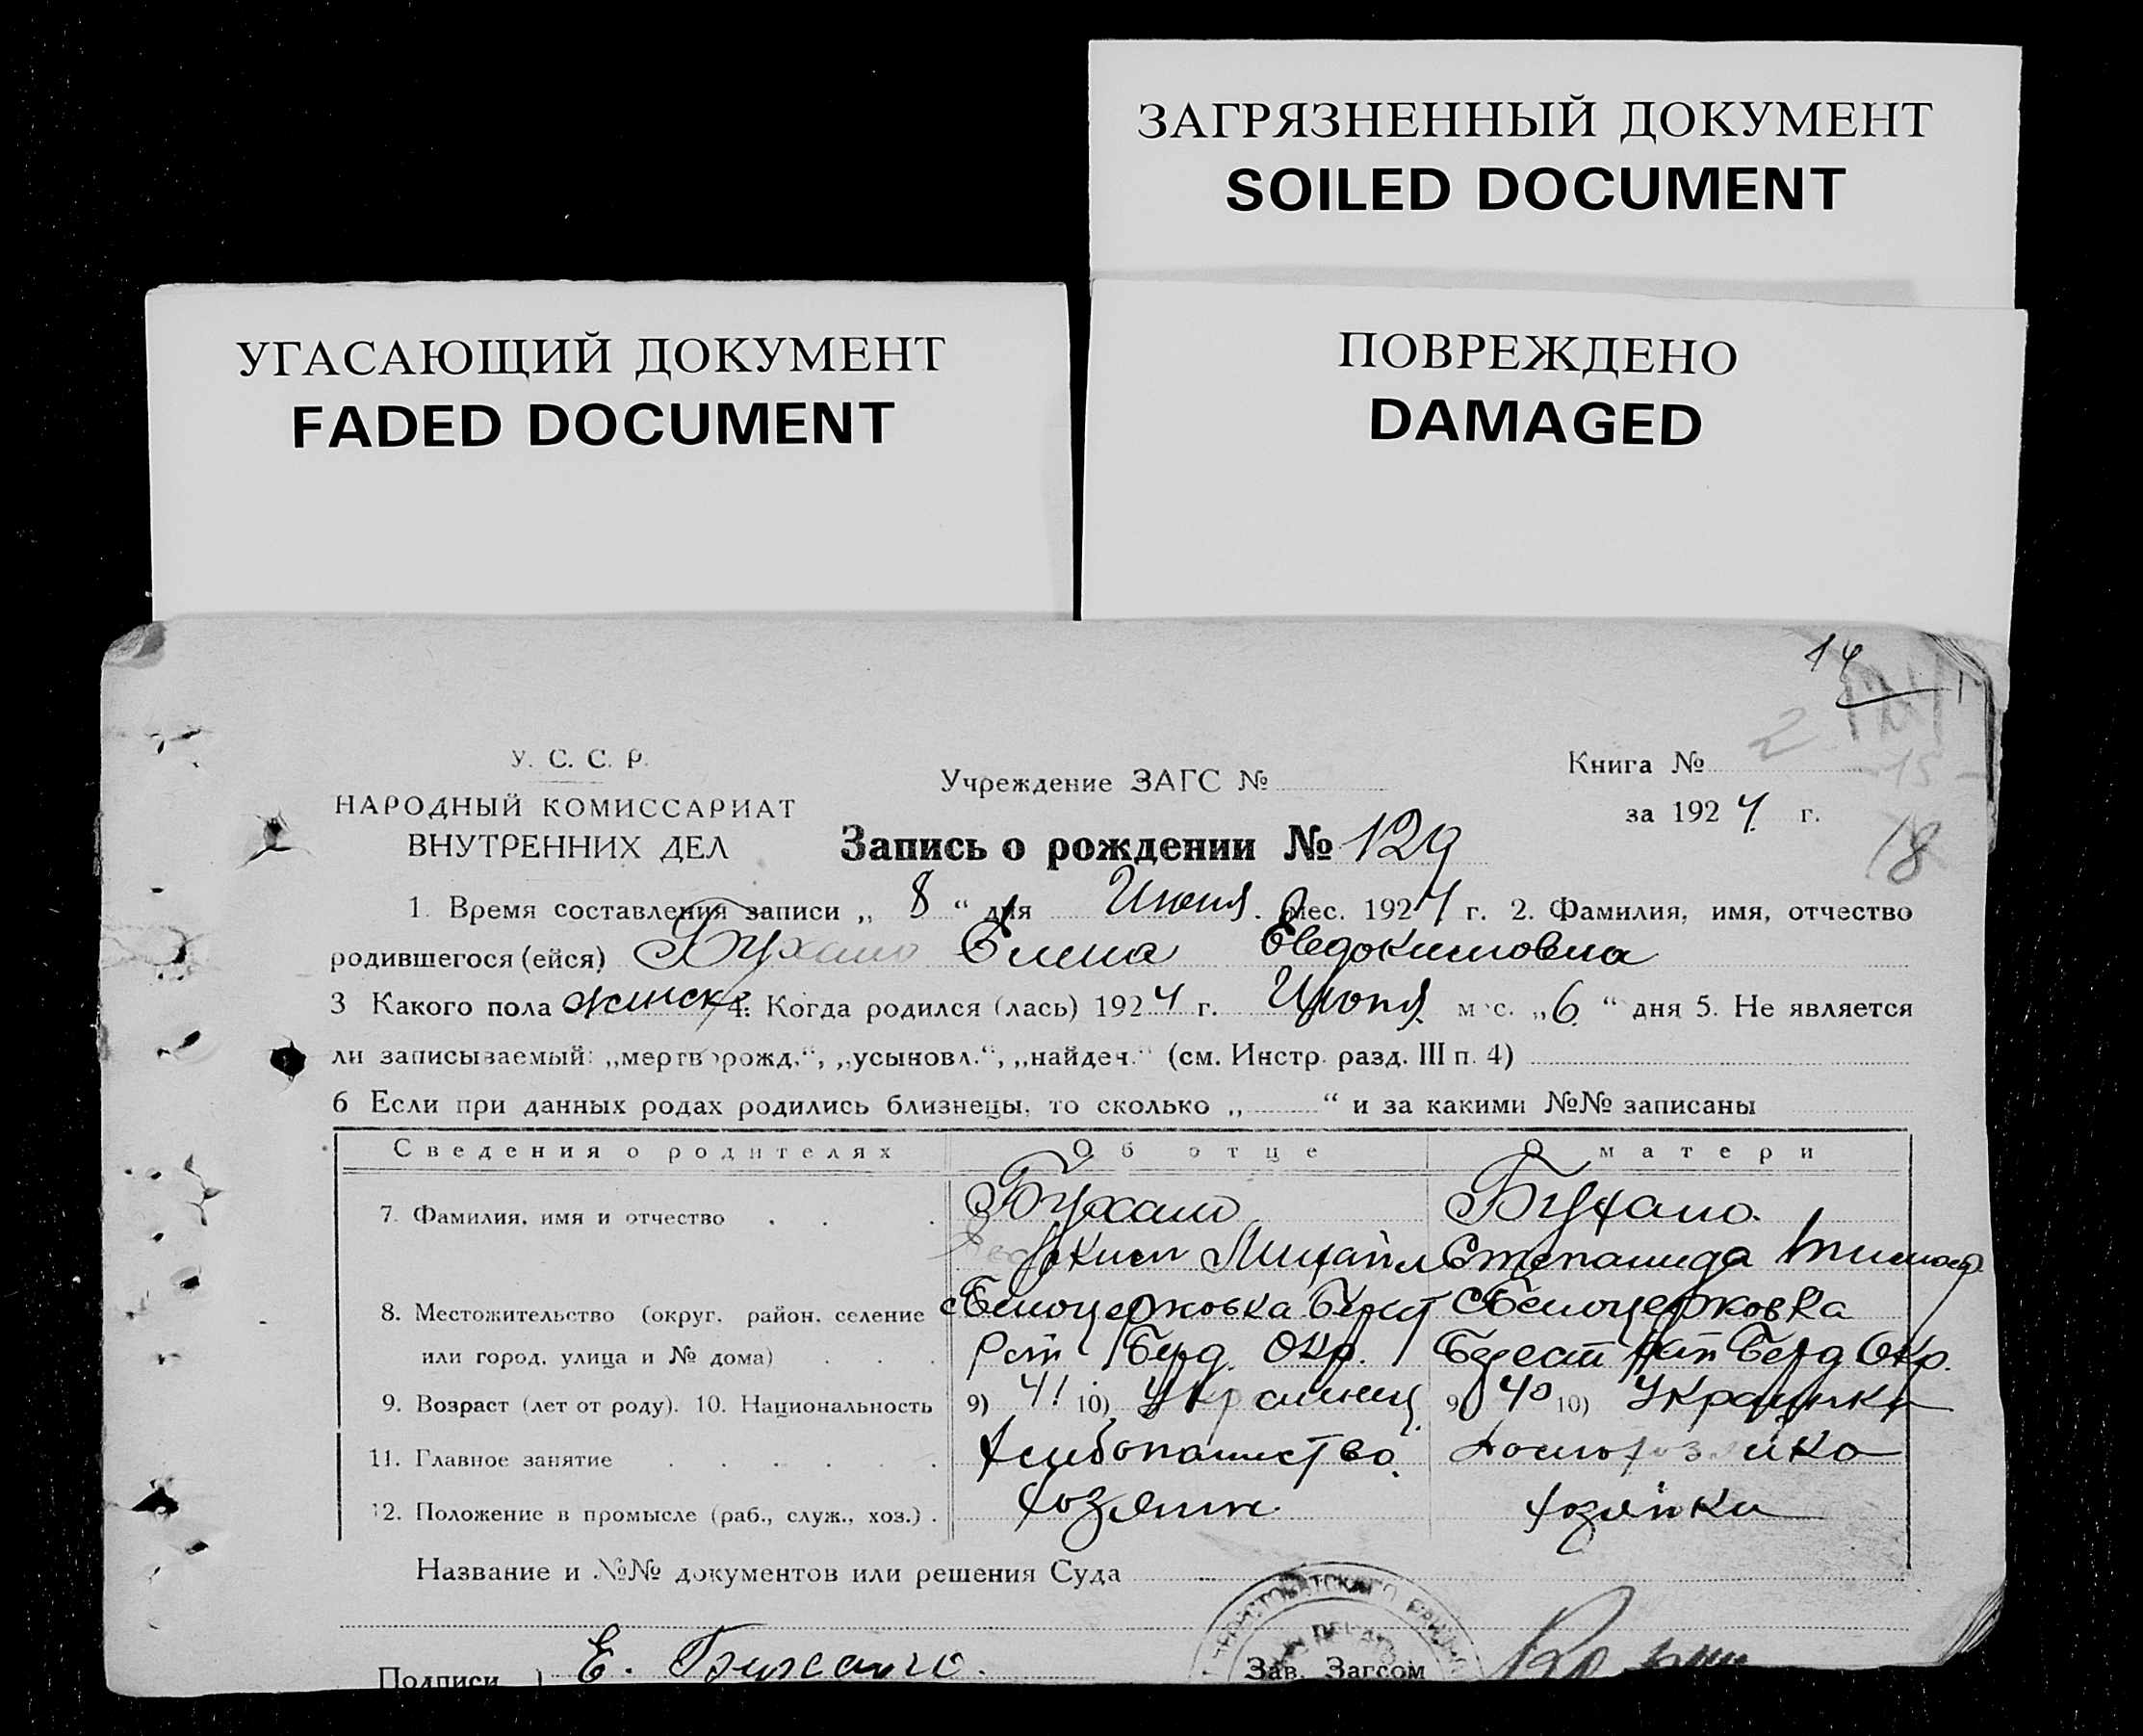 ЗАГРЯЗНЕННЫЙ ДОКУМЕНТ
SOILED DOCUMENT
УГАСАЮЩИЙ ДОКУМЕНТ
FADED DOCUMENT
ПОВРЕЖДЕНО
DAMAGED
14
У. С. С. Р.
НАРОДНЫЙ КОМИССАРИАТ
ВНУТРЕННИХ ДЕЛ
Учреждение ЗАГС №
Книга № 2
15
за 1924 г.
18
Запись о рождении № 129
1. Время составления записи „ 8 “ дня Июня мес. 1924 г. 2. Фамилия, имя, отчество
родившегося (ейся) Елена Евдокимовна
3 Какого пола женск 4. Когда родился (лась) 1924 г. Июня мес. „ 6 “ дня 5. Не является
ли записываемый: „мертворожд.“, „усыновл.“, „найден.“ (см. Инстр. разд. III п. 4)
6 Если при данных родах родились близнецы, то сколько „ “ и за какими №№ записаны
Сведения о родителях Об отце О матери
7. Фамилия, имя и отчество
Михайл Степанида Тимоф.
8. Местожительство (округ, район, селение с Белоцерковка Берест с Белоцерковка
или город, улица и № дома) Рай Берд. Окр. Берест Рай Берд Окр.
9. Возраст (лет от роду). 10. Национальность 9) 41 10) Украинец 9) 40 10) Украинка
11. Главное занятие Хлебопашество домохозяйка
12. Положение в промысле (раб., служ., хоз.) хозяин хозяйка
Название и №№ документов или решения Суда
Подписи) Е.
Зав. Загсом